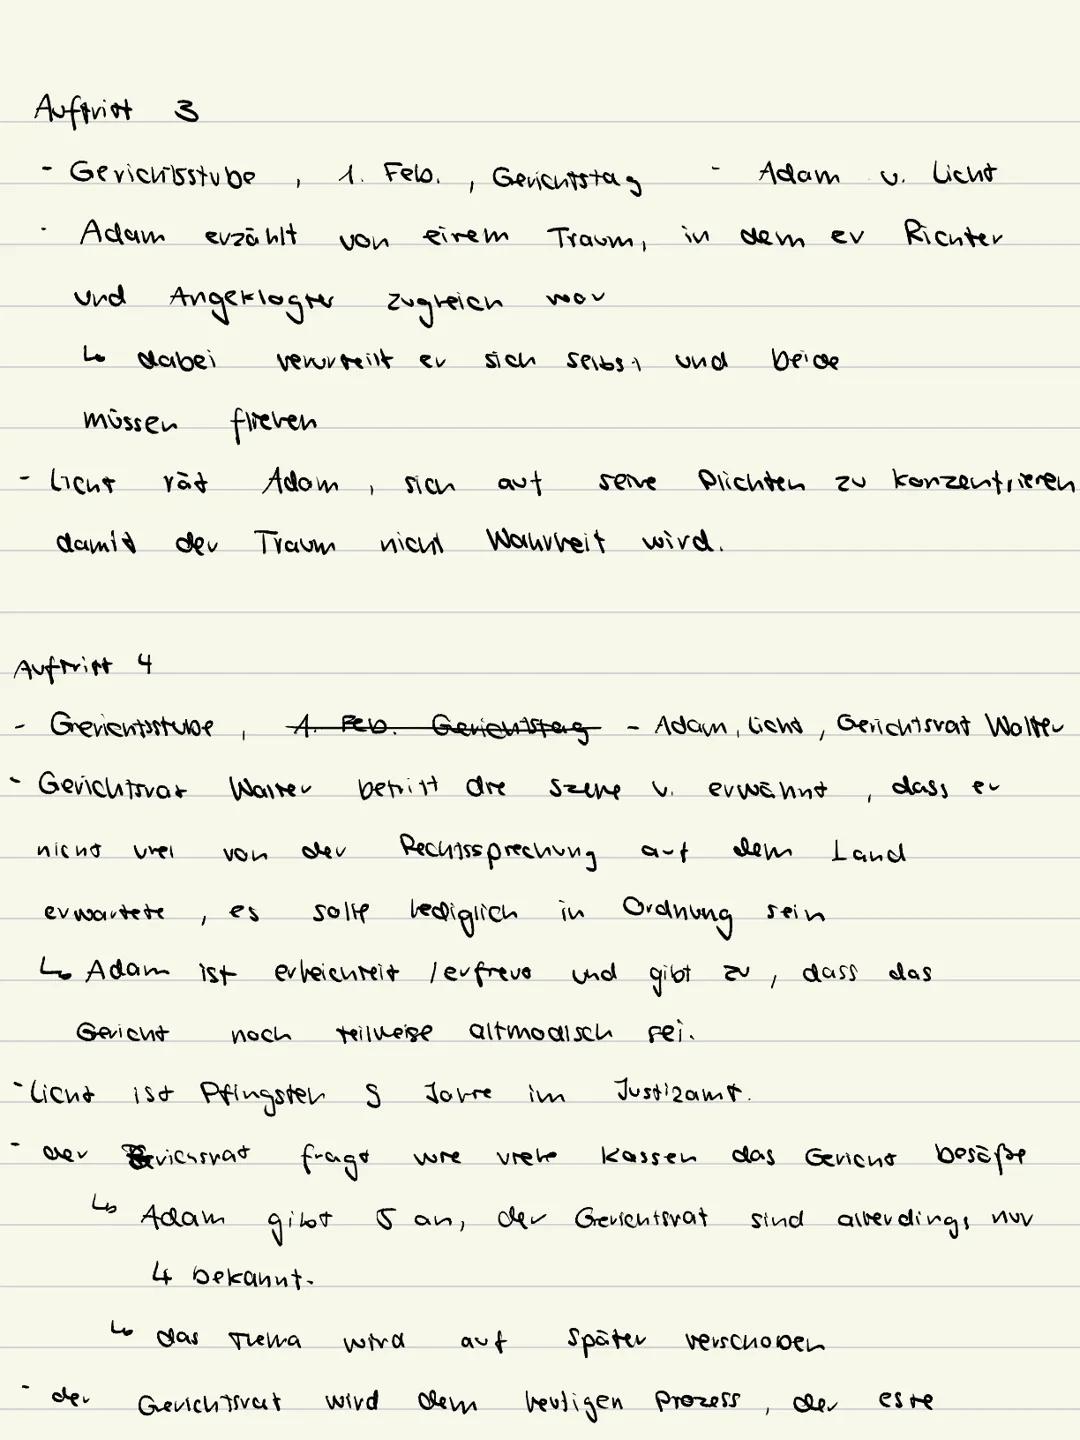 Auftritt 3
- Gerichtsstube, 1. Feb., Gerichtstag - Adam u. Licht
- Adam erzählt von einem Traum, in dem er Richter
und Angeklagter zugleich war
↳ dabei verurteilt er sich selbst und beide
müssen fliehen
- Licht rät Adam, sich auf seine Pflichten zu konzentrieren
damit der Traum nicht Wahrheit wird.
Auftritt 4
- Gerichtsstube, 1. Feb. Gerichtstag - Adam, Licht, Gerichtsrat Walter
- Gerichtsrat Walter betritt die Szene u. erwähnt, dass er
nicht viel von der Rechtssprechung auf dem Land
erwartete, es solle lediglich in Ordnung sein
↳ Adam ist erleichtert / erfreut und gibt zu, dass das
Gericht noch teilweise altmodisch sei.
- Licht ist Pfingsten 9 Jahre im Justizamt.
- der Gerichtsrat fragt wie viele Kassen das Gericht besäße
↳ Adam gibt 5 an, der Gerichtsrat sind allerdings nur
4 bekannt.
↳ das Thema wird auf später verschoben
- der Gerichtsrat wird dem heutigen Prozess, der erste